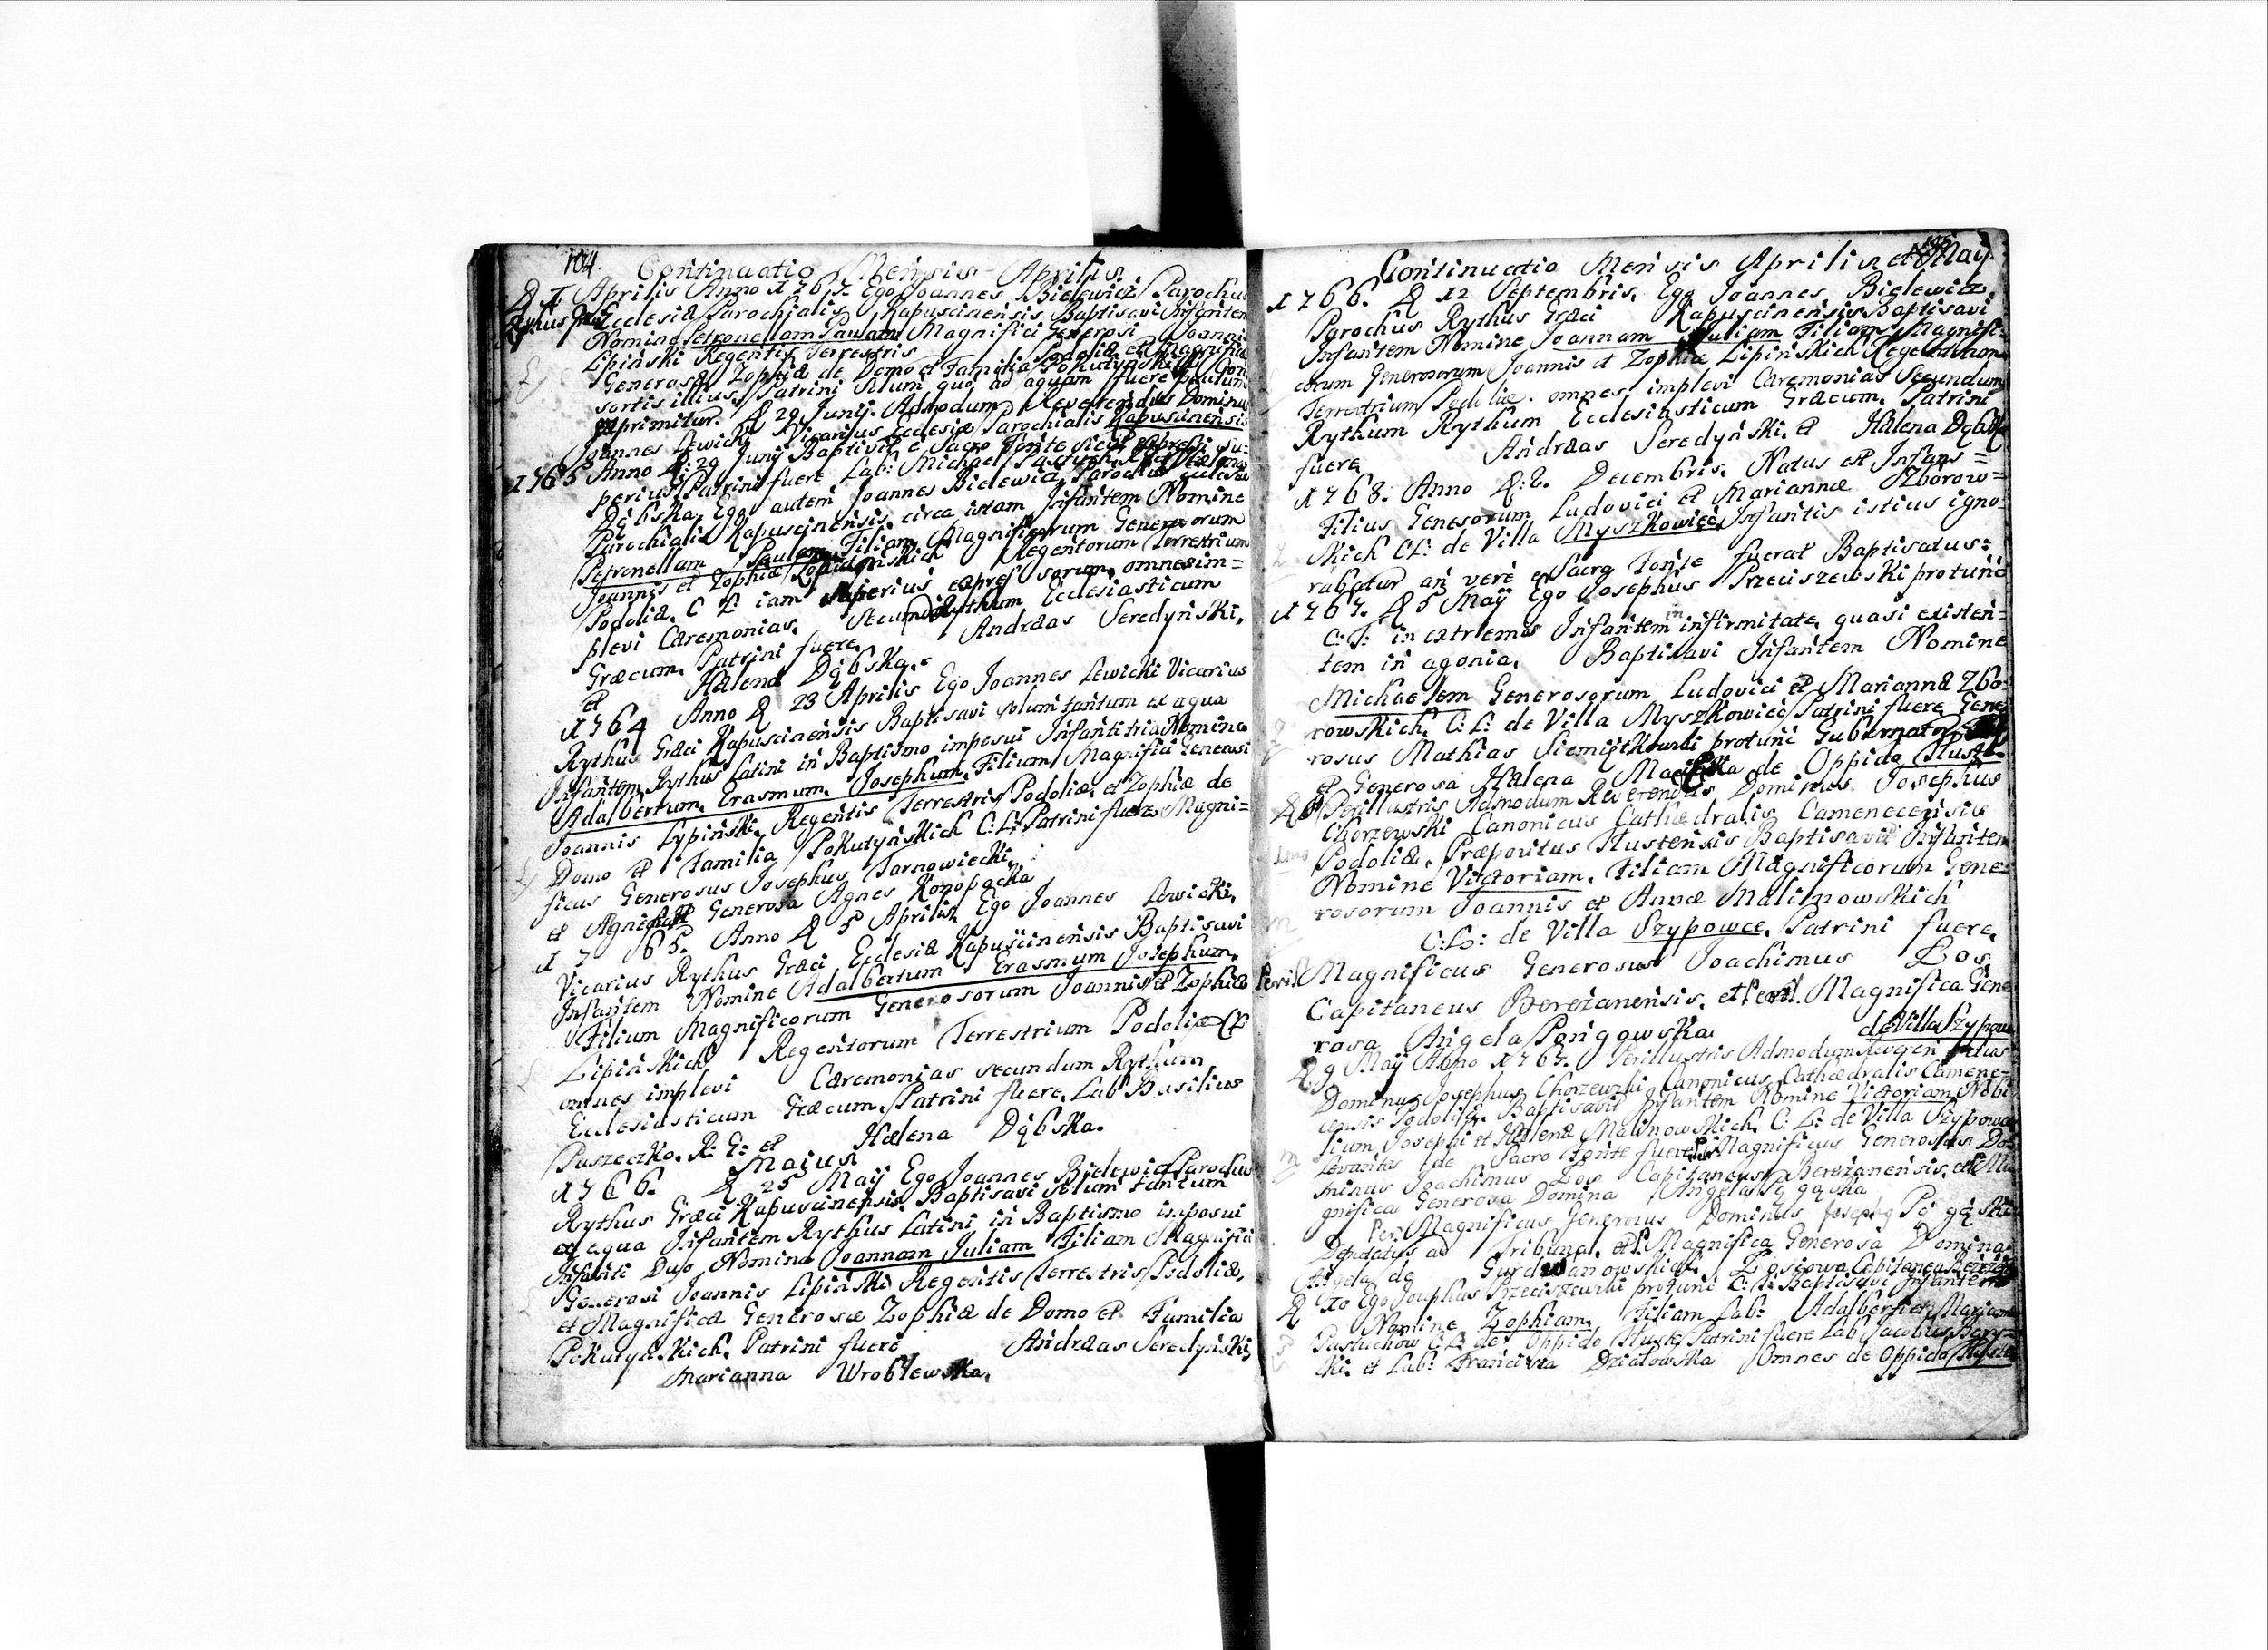 104.
Continuatio Mensis Aprilis
D 1 Aprilis Anno 1767. Ego Joannes Bielewicz Parochus
Rythus Græci Ecclesiæ Parochialis Kapuscinensis Baptisavi Infantem
Nomine Petronellam Paulam Magnifici Generosi Joannis
Lipinski Regentis Terrestris Podoliæ et Magnificæ
Generosæ Zophiæ de Domo et Familia Pokutynskich Con
sortis illius. Patrini solum quo, ad aquam fuere
exprimitur. D 29 Junij. Admodum Reverendus Dominus
Joannes Lewicki Vicarius Ecclesiæ Parochialis Kapuscinensis
1765 Anno D: 29 Junij Baptisivit e Sacro Fonte sicut expressi su-
perius Patrini fuere Lab: Michael et Hælena
Dąbska, Ego autem Joannes Bielewicz Parochus Ecclesiæ
Parochialis Kapuscinensis, circa istam Infantem Nomine
Petronellam Paulam Filiam Magnificorum Generosorum
Joannis et Zophiæ Lipinskich Regentorum Terrestrium
Podoliæ. C L: iam superius expressorum, omnes im=
plevi Cæremonias. Secundum Rythum Ecclesiasticum
Græcum, Patrini fuere, Andræas Seredyński,
et Hælena Dąbska.
1764 Anno D 23 Aprilis Ego Joannes Lewicki Vicarius
Rythus Græci Kapuscinensis Baptisavi solum tantum ex aqua
Infantem Rythus Latini in Baptismo imposui Infanti tria Nomina
Adalbertum, Erasmum, Josephum, Filium Magnifici Generosi
Joannis Lypiński, Regentis Terrestris Podoliæ, et Zophiæ de
Domo et Familia Pokutyńskich C: L: Patrini fuere Magni=
ficus Generosus Josephus Tarnowiecki,
et Generosa Agnes Konopacka
1765. Anno D 5 Aprilis Ego Joannes Lewicki,
Vicarius Rythus Græci Ecclesiæ Kapuscinensis Baptisavi
Infantem Nomine Adalbertum Erasmum Josephum,
Filium Magnificorum Generosorum Joannis et Zophiæ
Lipińskich Regentorum Terrestrium Podoliæ
omnes implevi Cæremonias secundum Rythum
Ecclesiasticum Græcum, Patrini fuere, Lab Basilius
Paszeczko. R: G: et Hælena Dąbska.
Majus
1766. D 25 Maij Ego Joannes Bielewicz Parochus
Rythus Græci Kapuscinensis, Baptisavi solum tantum
ex aqua Infantem Rythus Latini in Baptismo imposui
Infanti Duo Nomina Joannam Juliam Filiam Magnifici
Generosi Joannis Lipiński Regentis Terrestris Podoliæ,
et Magnificæ Generosæ Zophiæ de Domo et Familia
Pokutyńskich, Patrini fuere Andræas Seredyński,
Marianna Wroblewska,
105
Continuatio Mensis Aprilis et Maij
1766. D 12 Septembris, Ego Joannes Bielewicz,
Parochus Rythus Græci Kapuscinensis Baptisavi
Infantem Nomine Joannam Juliam Filiam Magnifi-
corum Generosorum Joannis et Zophiæ Lipińskich Regentorum
Terrestrium Podoliæ. omnes implevi Cæremonias Secundum
Rythum Rythum Ecclesiasticum Græcum, Patrini
fuere Andræas Seredyński, et Hælena Dąbska
1763. Anno D: 6. Decembris, Natus est Infans=
Filius Generosorum Ludovici et Mariannæ Zborow=
skich CL: de Villa Myszkowiec, Infantis istius igno-
rabatur an verè e Sacro Fonte fuerat Baptisatus:
1767. D 5 Maij Ego Josephus Przeciszewski protunc
C: H: in extremis Infantem in infirmitate, quasi existen=
tem in agonia, Baptisavi Infantem Nomine
Michaelem Generosorum Ludovici et Mariannæ Zbo-
rowskich, C: L: de Villa Myszkowiec Patrini fuere Gene
rosus Mathias Siemiątkowski protunc Gubernator
et Generosa Hælena de Oppido Husté
D Perillustris Admodum Reverendus Dominus Josephus
Chorzewski Canonicus Cathædralis Camenecensis
Podoliæ, Præpositus Hustensis Baptisavit Infantem
Nomine Victoriam, Filiam Magnificorum Gene=
rosorum Joannis et Annæ Malinowskich
C: L: de Villa Szypowce, Patrini fuere,
Magnificus Generosus Joachimus Łos,
Capitaneus Berezanensis, et Magnifica Gene
rosa Angela Pongowska de Villa Szypow
D 9 Maij Anno 1767. Perillustris Admodum Reveren dus
Dominus Josephus Chorzewski Canonicus Cathædralis Camene=
censis Podoliæ, Baptisavit Infantem Nomine Victoriam Nobi
lium Josephi et Hælenæ Malinowskich, C: L: de Villa Szypowce
Levantes de Sacro Fonte fuere Magnificus Generosus Do=
minus Joachimus Łos Capitaneus Berezanensis, et Ma
gnifica Generosa Domina Angela
Per: Magnificus Generosus Dominus Joseph9
Deputatus ad Tribunal, et Magnifica Generosa Domina
Angela de Łosiowa Capitanea
D 10 Ego Josephus Przeciszewski protunc C: H: Baptisavi Infantem
Nomine Zophiam, Filiam Lab: Adalberti et Mariannæ
Pastuchow C L: de Oppido Husté Patrini fuere Lab Jacobus
ski et Lab: Francisca Działowska Omnes de Oppido Husté